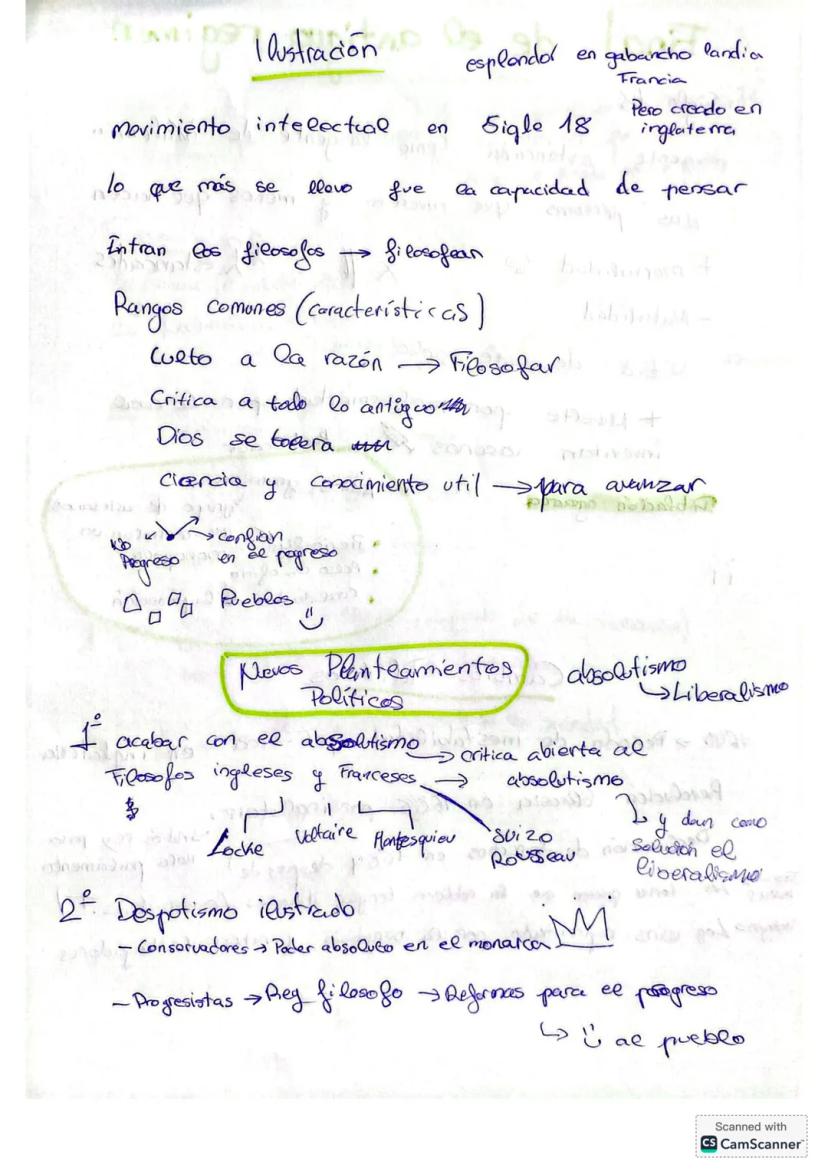 Ilustración
esplendor en gabancho landia
Francia
Pero creado en
inglaterra
movimiento intelectual en Sigle 18
lo que más se llevo fue la capacidad de pensar
Entran los filosofos → filosofear
Rangos comunes (características)
Culto a la razón → Filosofar
Critica a todo lo antiguo
Dios se tolera
Ciencia y conocimiento util → para avanzar
No
Progreso
→ confian
en el pogreso
Pueblos
Nevos Planteamientos
Políticos
absolutismo
↳ Liberalismo
1º acabar con el absolutismo → critica abierta al
Filosofos ingleses y Franceses → absolutismo
Locke Voltaire Montesquieu
suizo
Rousseau
↳ y dan como
Solución el
liberalismo
2º Despotismo ilustrado
- Conservadores → Poder absoluto en el monarca
- Progresistas → Rey filosofo → Reformas para el progreso
↳ al pueblo
Scanned with
CS CamScanner